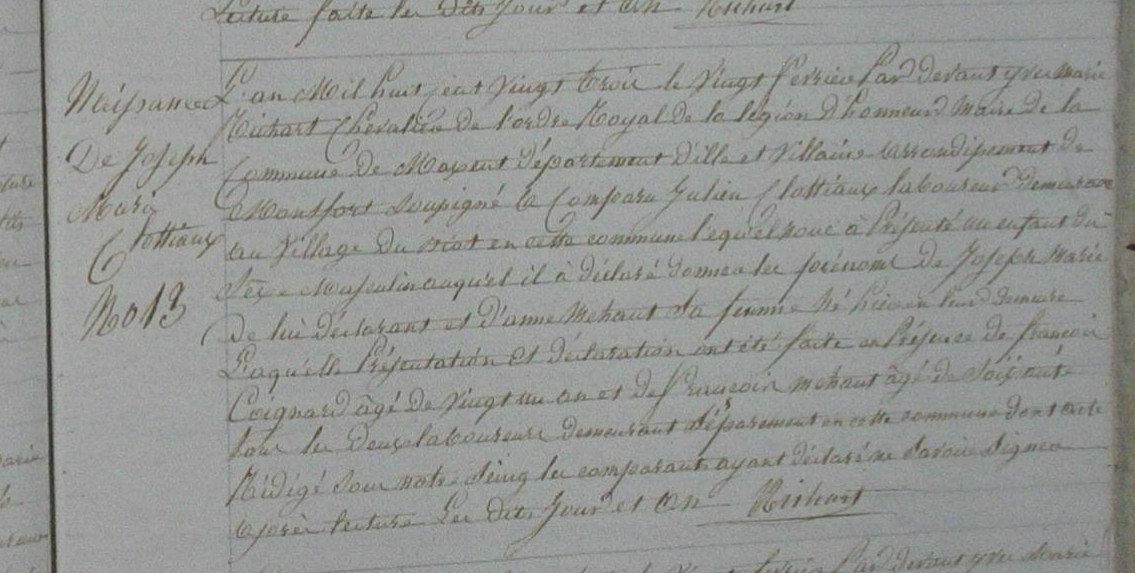 Lecture faite les dits Jour et an Richart
Naissance
De Joseph
Marie
Clottiaux
No 13
L'an Mil huit cent Vingt trois le Vingt fevrier Par devant yves marie
Richart Chevalier de l'ordre Royal de la légion d'honneur Maire de la
Commune de Maxent département d'ille et Villaine arrondissement de
Montfort Soussigné à Comparu Julien Clottiaux laboureur demeurant
au Village du en cette commune lequel nous à Présenté un enfant du
Sexe Masculin auquel il à déclaré donner les prénoms de Joseph Marie
de lui déclarant et d'anne Mehaut Sa femme Né hier en leur demeure
Laquelle Présentation et déclaration ont été faite en Présence de francois
Coignard âgé de Vingt un an et de francois mehaut âgé de Soixante
tous les deux laboureurs demeurant Séparement en cette commune dont acte
Rédigé Sous notre Seing les comparants ayant déclaré ne Savoir Signer
après lecture Les dits Jour et an Richart
Par devant yves Marie